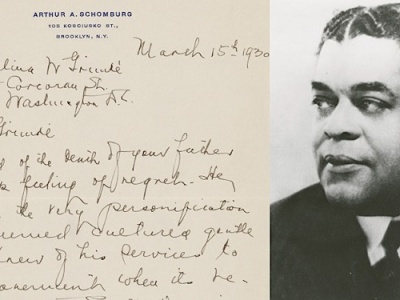 ARTHUR A. SCHOMBURG
105 KOSCIUSKO ST.,
BROOKLYN, N.Y.
March 15th 1930
lina W Grimké
Corcoran St.
Washington D.C.
Grimké
of the death of your father
feeling of regret. He
the very personification
cultured gentle
knew of his services to
when its be-